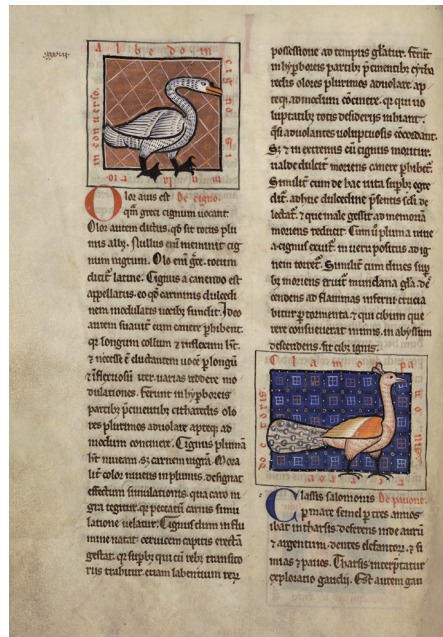 Albedo in
cigno. si
in converso.
Olor auis est De cigno.
qm̄ greci cignum uocant.
Olor autem dictus. qd̄ sit totus plu
mis albꝰ. Nullus enī meminit cig
num nigrum. Olo enī gr̄e. totum
dicit̄ latine. Cignus a canendo est
appellatus. eo qd̄ carminis dulcedi
nem modulatis uocibꝰ fundit. Ideo
autem suauit̄ eum canere ꝑhibent.
qꝛ longum collum ⁊ inflexum ht̄.
⁊ necesse ē eluctantem uocē ꝑ longū
⁊ flexuosū iter. uarias reddere mo
dulationes. Ferunt in hyꝑboreis
partibꝰ p̄cinentibꝰ citharedis olo
res plurimos aduolare. apteqꝫ ad
modum concinere. Cignus plumā
ht̄ niueam. sꝫ carnem nigrā. Mora
lit̄ color niueus in plumis. designat
effectum simulationis. qua caro ni
gra tegitur. qꝛ peccatū carnis simu
latione uelatur. Cignus dum in flu
mine natat. ceruicem capitis erectā
gestat. qꝛ suꝑbꝰ qui cū rebꝰ transito
riis trahitur. etiam labentium rerꝝ
possessione ad tempus gl̄atur. Ferūt
in hyꝑboreis partibꝰ p̄cinentibꝰ cytha
redis olores plurimos aduolare. ap
teqꝫ ad modum cōcinere. qꝛ qui uo
luptatibꝰ totis desideriis inhiant.
q̄si aduolantes uoluptuosis concordant.
Sꝫ ⁊ in extremis cū cignus moritur.
ualde dulcit̄ moriens canere ꝑhibet̄.
Similit̄ cum de hac uita suꝑbꝰ egre
dit̄. adhuc dulcedine p̄sentis scl̄i. de
lectat̄. ⁊ que male gessit ad memoriā
moriens reducit. Cum ū pluma niue
a cignus exuit̄. in ueru positus ad ig
nem torret̄. Similit̄ cum diues suꝑ
bꝰ moriens exuit̄ mundana gl̄a. de
cendens ad flammas inferni crucia
bitur ꝑ tormenta. ⁊ qui cibum que
rere consueuerat in imis. in abyssum
descendens. fit cibꝰ ignis.
Clamor pa
uonis
doctoris.
Classis salomonis De pauone.
ꝑ mare semel ꝑ tres annos
ibat in tharsis. deferens inde aurū
⁊ argentum. dentes elefantorꝝ. ⁊ si
mias ⁊ pauos. Tharsis int̄pretatur
exploratio gaudii. Est autem gau